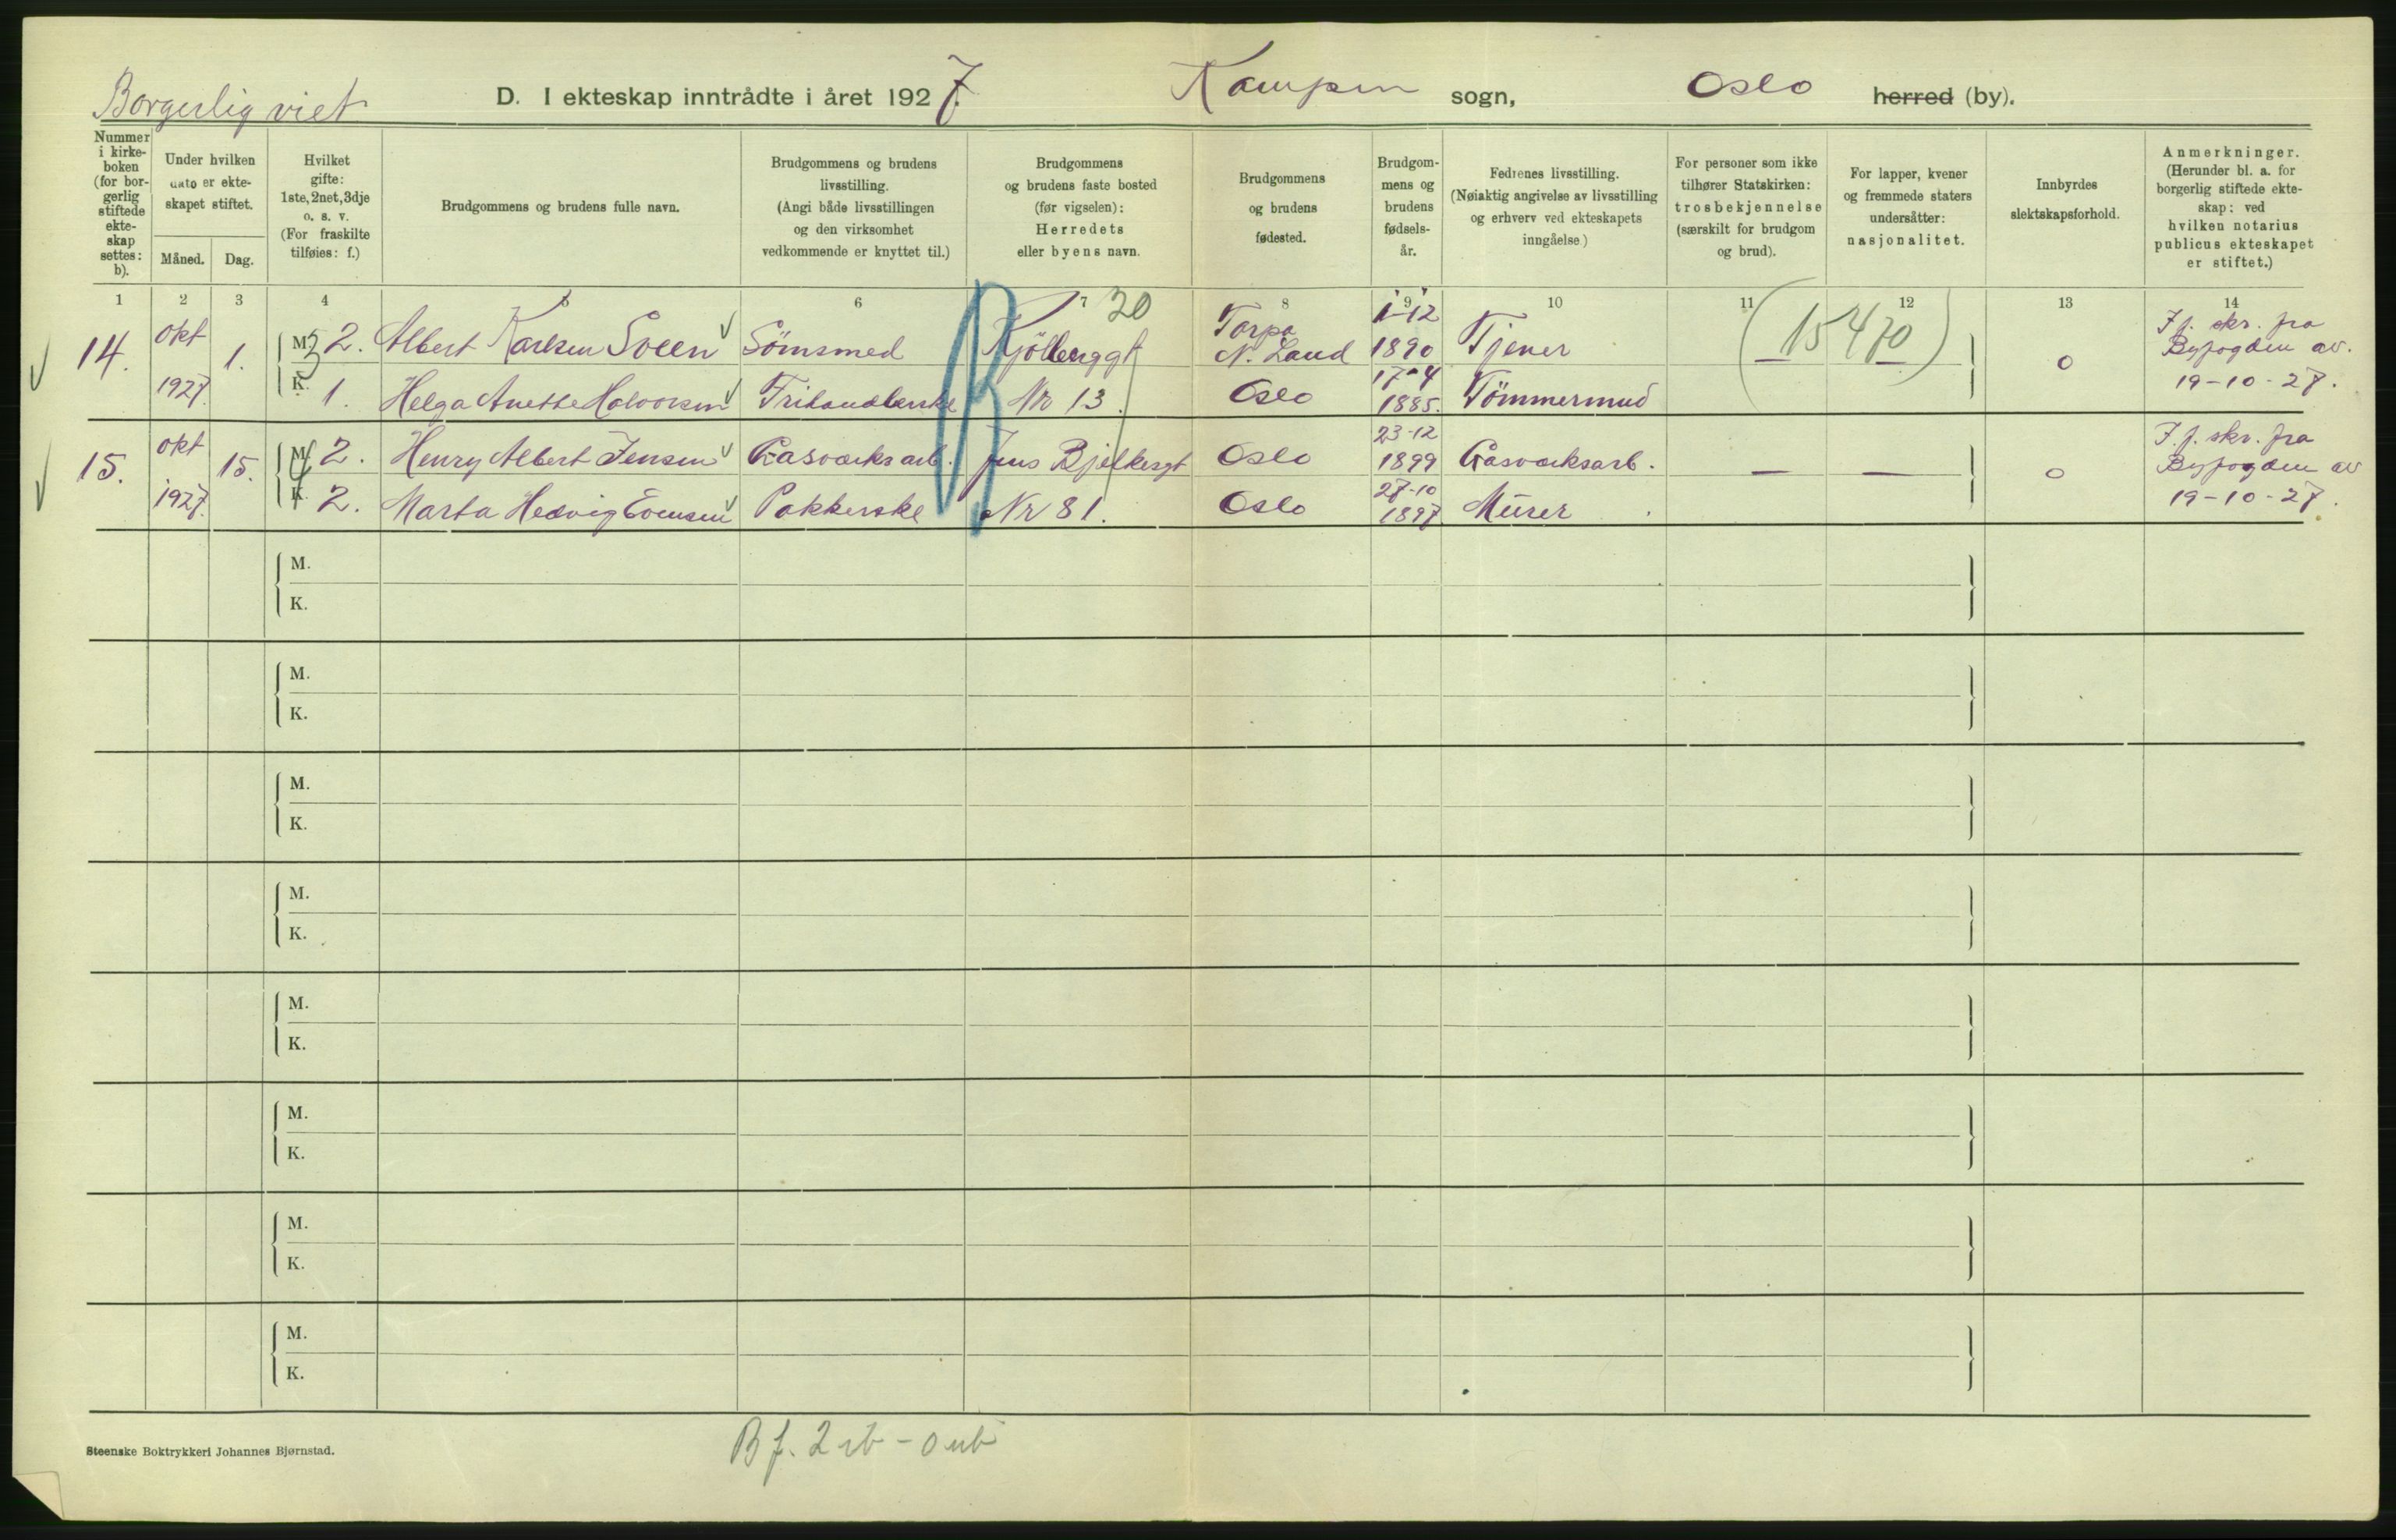 Borgerlig viet
D. I ekteskap inntrådte i året 1927. Kampen sogn, Oslo herred (by).
Nummer i kirkeboken (for borgerlig stiftede ekteskap settes: b).
Under hvilken dato er ekteskapet stiftet.
Måned. Dag.
Hvilket gifte: 1ste, 2net, 3dje o. s. v. (For fraskilte tilføies: f.)
Brudgommens og brudens fulle navn.
Brudgommens og brudens livsstilling. (Angi både livsstillingen og den virksomhet vedkommende er knyttet til.)
Brudgommens og brudens faste bosted (før vigselen): Herredets eller byens navn.
Brudgommens og brudens fødested.
Brudgommens og brudens fødselsår.
Fedrenes livsstilling. (Nøiaktig angivelse av livsstilling og erhverv ved ekteskapets inngåelse.)
For personer som ikke tilhører Statskirken: trosbekjennelse (særskilt for brudgom og brud).
For lapper, kvener og fremmede staters undersåtter: nasjonalitet.
Innbyrdes slektskapsforhold.
Anmerkninger. (Herunder bl. a. for borgerlig stiftede ekteskap: ved hvilken notarius publicus ekteskapet er stiftet.)
1 2 3 4 5 6 7 8 9 10 11 12 13 14
20 (15470)
14. okt 1927. 1. M. 2. Albert Karlsen Soeen Sömsmed Kjölberggt Torpa N. Land 1-12 1890 Tjener — — 0 I f. skr. fra Byfogden av. 19-10-27.
K. 1. Helga Anette Halvorsen Frihandlerske Nr 13. Oslo 17-4 1885. Tömmermnd
15. okt 1927. 15. M. 2. Henry Albert Jensen Gasværksarb. Jens Bjelkesgt Oslo 23-12 1899 Gasværksarb. — — 0 I. f. skr. fra Byfogden av 19-10-27.
K. 2. Marta Hedvig Evensen Pakkerske Nr 81. Oslo 27-10 1897 Murer
M.
K.
M.
K.
M.
K.
M.
K.
M.
K.
M.
K.
M.
K.
M.
K.
Steenske Boktrykkeri Johannes Bjørnstad.
B f. 2 ib - 0 ub